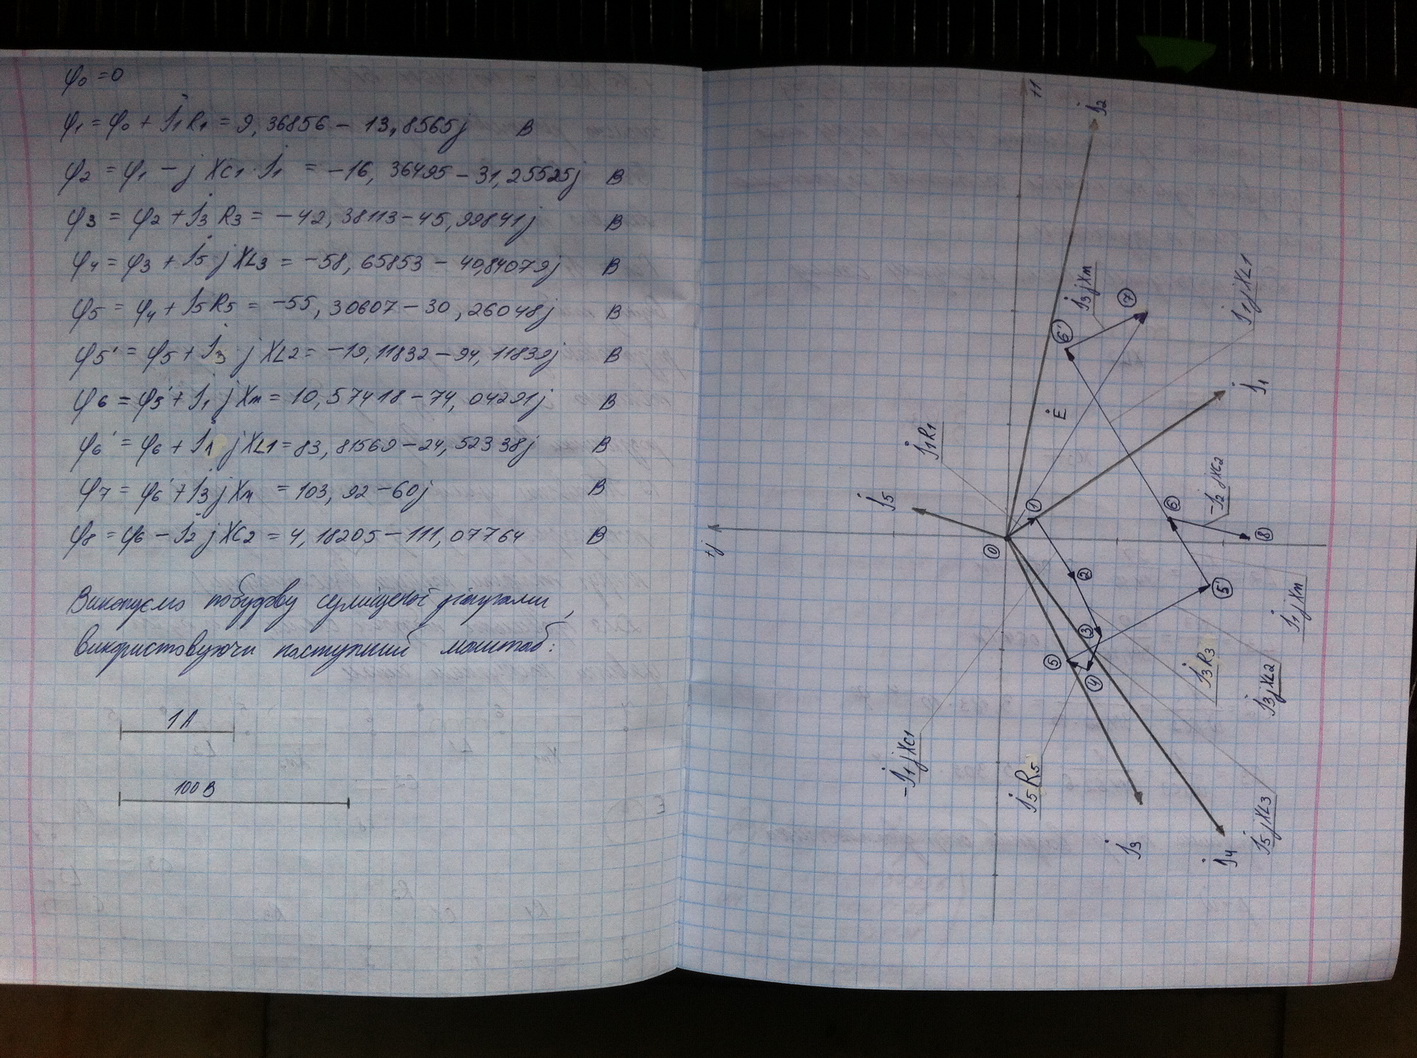 φ₀ = 0
φ₁ = φ₀ + İ₁R₁ = 9,36856 – 13,8565j В
φ₂ = φ₁ – j Xc₁·İ₁ = –16,36495 – 31,25525j В
φ₃ = φ₂ + İ₃ R₃ = –42,38113 – 45,99841j В
φ₄ = φ₃ + İ₅ j XL₃ = –58,65853 – 40,84079j В
φ₅ = φ₄ + İ₅R₅ = –55,30607 – 30,26048j В
φ₅' = φ₅ + İ₃ j XL₂ = –19,11832 – 94,11839j В
φ₆ = φ₅' + İ₁ j Xm = 10,57418 – 74,04291j В
φ₆' = φ₆ + İ₁ j XL₁ = 83,81569 – 24,52338j В
φ₇ = φ₆' + İ₃j Xm = 103,92 – 60j В
φ₈ = φ₆ – İ₂ j Xc₂ = 4,18205 – 111,07764 В
Виконуємо побудову сумищеної діаграми,
використовуючи наступний масштаб:
1 А
100 В
+1
İ₂
İ₃jXm
7
6'
İ₁jXL1
Ė
İ₁
İ₁R₁
İ₅
–İ₂jXc2
1
6
8
+j
0
2
5'
İ₁jXm
3
5
4
İ₃R₃
İ₃jXL2
–İ₁jXc1
İ₅R₅
İ₅jXL3
İ₃
İ₄